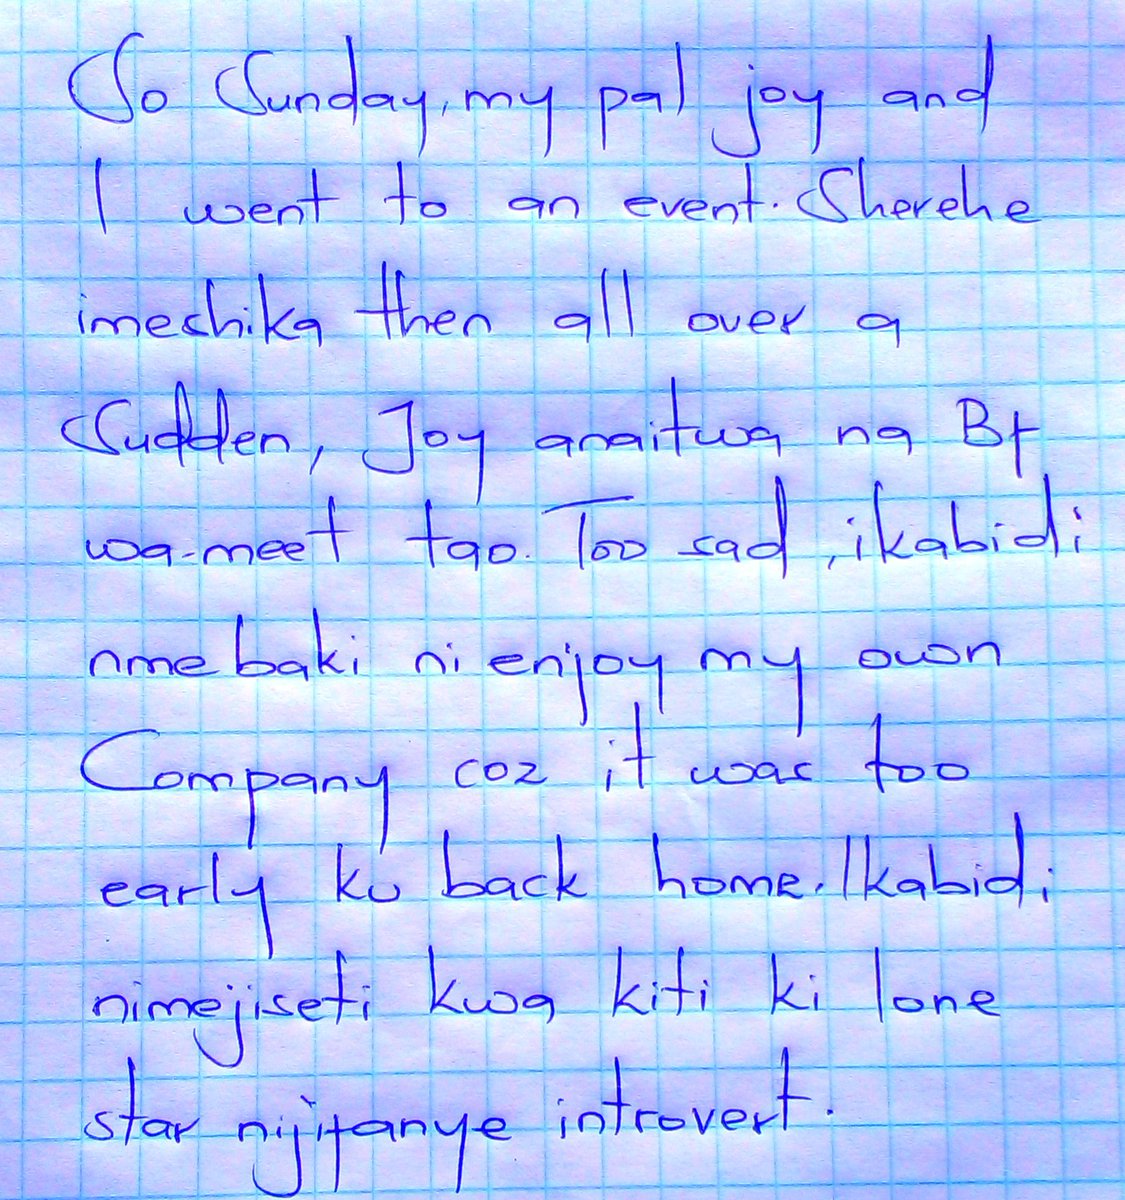 So Sunday, my pal joy and
I went to an event. Sherehe
imeshika then all over a
Sudden, Joy anaitwa na Bf
wa-meet tao. Too sad, ikabidi
nmebaki ni enjoy my own
Company coz it was too
early ku back home. Ikabidi
nimejiseti kwa kiti ki lone
star nijifanye introvert.